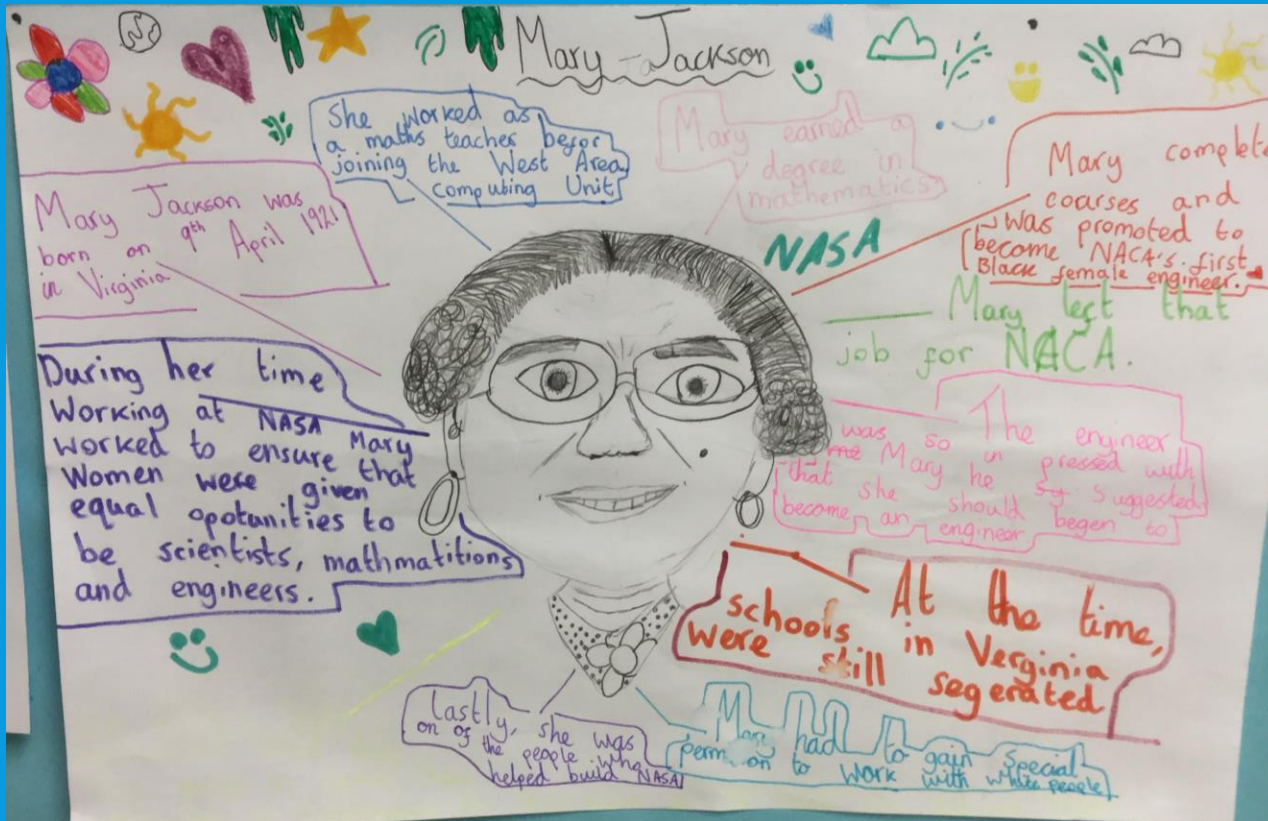 Mary Jackson
She worked as
a maths teacher befor
joining the West Area
computing Unit
Mary earned a
degree in
mathematics
Mary complete
coarses and
was promoted to
become NACA's first
Black female engineer.
Mary Jackson was
born on 9th April 1921
in Virginia
NASA
Mary left that
job for NACA.
During her time
Working at NASA Mary
worked to ensure that
Women were given
equal opotunities to
be scientists, mathmatitions
and engineers.
The engineer
was so in pressed with
Mary he suggested
that she should begen to
become an engineer
At the time,
schools in Verginia
were still segerated
Lastly, she was
on of the people who
helped build NASA
Mary had to gain special
to work with white people